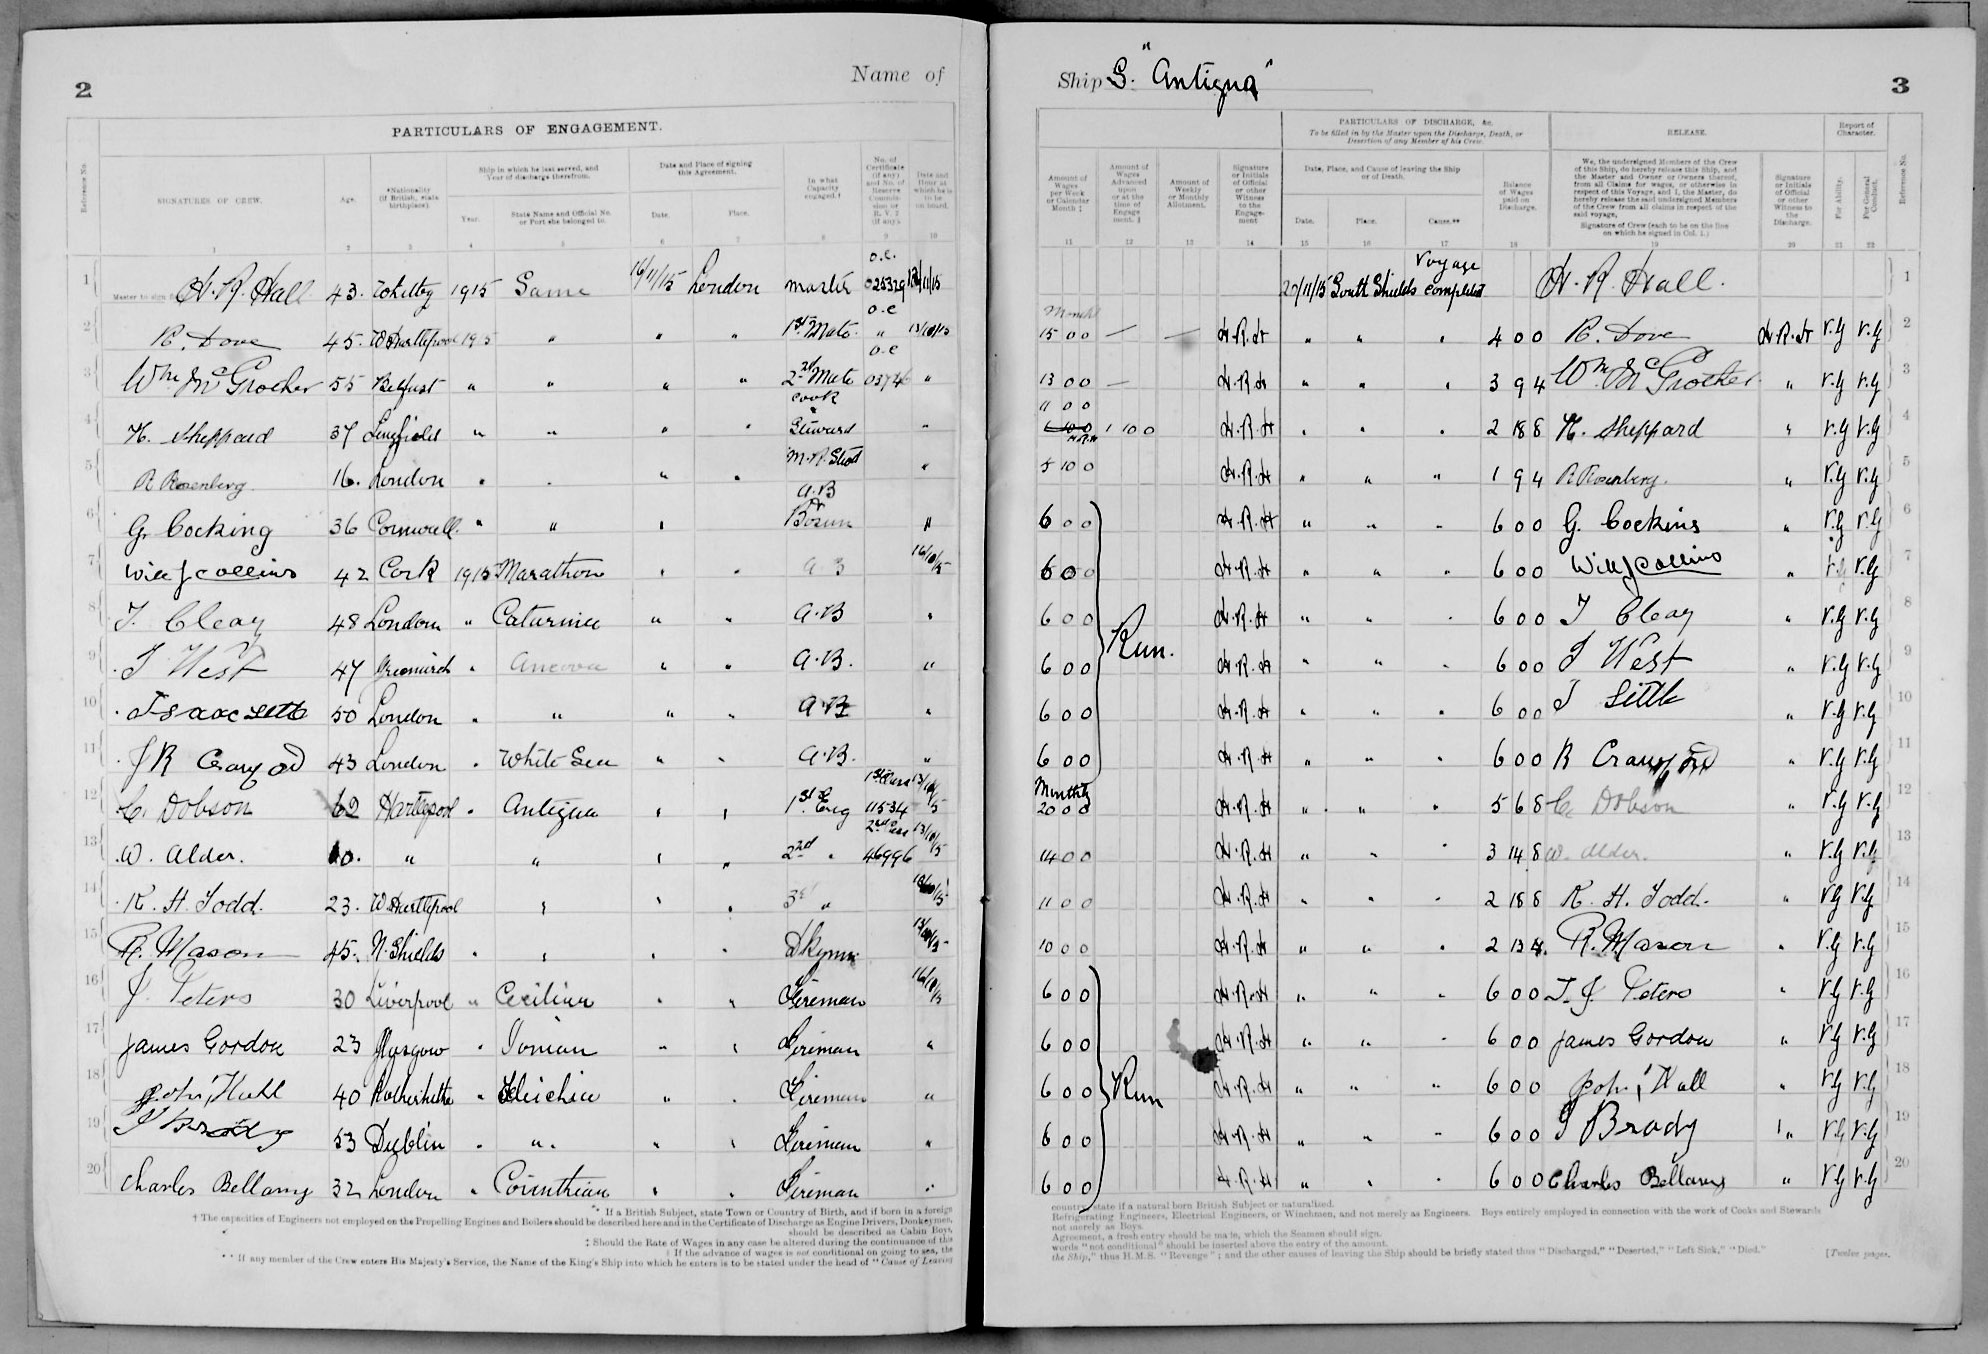 2
Name of
PARTICULARS OF ENGAGEMENT.
Reference No.
SIGNATURES OF CREW.
Age.
*Nationality (if British, state birthplace).
Ship in which he last served, and Year of discharge therefrom.
Year.
State Name and Official No. or Port she belonged to.
Date and Place of signing this Agreement.
Date.
Place.
In what Capacity engaged.†
No. of Certificate (if any) and No. of Reserve Commission or R.V.2 (if any).
Date and Hour at which he is to be on board.
1 2 3 4 5 6 7 8 9 10
1 Master to sign H. R. Hall 43. Whitby 1915 Same 16/11/15 London Master O.C. 025329
2 R. Dove 45. W Hartlepool 1915 " " " 1st Mate O.C " 13/10/15
3 Wm McGrocher 55 Belfast " " " " 2nd Mate O.C "
4 H. Sheppard 37 Lingfield " " " " Cook & Steward "
5 R Rosenberg 16. London " " " " M.R. Std "
6 G. Cocking 36 Cornwall. " " " A.B Bosun "
7 Will J Collins 42 Cork 1915 Marathon " " A B 16/10/15
8 T. Cleay 48 London " " " A.B "
9 T West 47 Greenwich " " " A.B. "
10 Isaac Little 50 London " " " " A.B "
11 J R Crawford 43 London " White Sea " " A.B. "
12 C. Dobson 62 Hartlepool " Antigua " " 1st Eng 1st Class 11534 13/10/15
13 W. Alder. " " " " 2nd " 2nd Class 46996 13/10/15
14 R. H. Todd. 23. W Hartlepool " " " 3rd " 13/10/15
15 R. Mason 45. N. Shields " " " " Dkyman 13/10/15
16 J. Peters 30 Liverpool " Cecilian " " Fireman 16/10/15
17 James Gordon 23 Glasgow " Ionian " " Fireman "
18 John Hall 40 Rotherhithe " " " Fireman "
19 T Brady 53 Dublin " " " " Fireman "
20 Charles Bellamy 32 London " Corinthian " " Fireman "
** If a British Subject, state Town or Country of Birth, and if born in a foreign
† The capacities of Engineers not employed on the Propelling Engines and Boilers should be described here and in the Certificate of Discharge as Engine Drivers, Donkeymen,
should be described as Cabin Boys,
‡ Should the Rate of Wages in any case be altered during the continuance of this
If the advance of wages is not conditional on going to sea, the
** If any member of the Crew enters His Majesty's Service, the Name of the King's Ship into which he enters is to be stated under the head of "Cause of Leaving
Ship S. "Antigua"
3
Amount of Wages per Week or Calendar Month ‡
Amount of Wages Advanced upon or at the time of Engagement. ‖
Amount of Weekly or Monthly Allotment.
Signature or Initials of Official or other Witness to the Engagement
PARTICULARS OF DISCHARGE, &c.
To be filled in by the Master upon the Discharge, Death, or Desertion of any Member of his Crew.
Date, Place, and Cause of leaving the Ship or of Death.
Date.
Place.
Cause.**
Balance of Wages paid on Discharge.
RELEASE.
We, the undersigned Members of the Crew of this Ship, do hereby release this Ship, and the Master and Owner or Owners thereof, from all Claims for wages, or otherwise in respect of this Voyage, and I, the Master, do hereby release the said undersigned Members of the Crew from all claims in respect of the said voyage,
Signature of Crew (each to be on the line on which he signed in Col. 1.)
Signature or Initials of Official or other Witness to the Discharge.
Report of Character.
For Ability.
For General Conduct.
Reference No.
11 12 13 14 15 16 17 18 19 20 21 22
South Shields Voyage completed H. R. Hall. 1
Month
15 0 0 — — H.R.H " " " 4 0 0 R. Dove H.R.H V.G V.G 2
13 0 0 — H.R.H " " " 3 9 4 Wm McGrocher " V.G V.G 3
11 0 0
1 10 0 H.R.H " " " 2 18 8 H. Sheppard " V.G V.G 4
5 10 0 H.R.H " " " 1 9 4 R Rosenberg. " V.G V.G 5
6 0 0 H.R.H " " " 6 0 0 G. Cocking V.G V.G 6
6 0 0 H.R.H " " " 6 0 0 Will J Collins " V.G V.G 7
6 0 0 Run. H.R.H " " " 6 0 0 T Cleay " V.G V.G 8
6 0 0 H.R.H " " " 6 0 0 T West " V.G V.G 9
6 0 0 H.R.H " " " 6 0 0 I Little " V.G V.G 10
6 0 0 H.R.H " " " 6 0 0 R Crawford " V.G V.G 11
Monthly
20 0 0 H.R.H " " " 5 6 8 C. Dobson " V.G V.G 12
14 0 0 H.R.H " " " 3 14 8 W. Alder. " V.G V.G 13
11 0 0 H.R.H " " " 2 18 8 R. H. Todd. " V.G V.G 14
10 0 0 H.R.H " " " 2 13 4. R. Mason " V.G V.G 15
6 0 0 H.R.H " " " 6 0 0 T. J Peters " V.G V.G 16
6 0 0 H.R.H " " " 6 0 0 James Gordon " V.G V.G 17
6 0 0 Run H.R.H " " " 6 0 0 John Hall " V.G V.G 18
6 0 0 H.R.H " " " 6 0 0 T Brady " V.G V.G 19
6 0 0 H.R.H " " " 6 0 0 Charles Bellamy " V.G V.G 20
country, state if a natural born British Subject or naturalized.
Refrigerating Engineers, Electrical Engineers, or Winchmen, and not merely as Engineers. Boys entirely employed in connection with the work of Cooks and Stewards
not merely as Boys.
Agreement, a fresh entry should be made, which the Seamen should sign.
words "not conditional" should be inserted above the entry of the amount.
the Ship," thus H.M.S. "Revenge"; and the other causes of leaving the Ship should be briefly stated thus "Discharged," "Deserted," "Left Sick," "Died."
[Twelve pages.